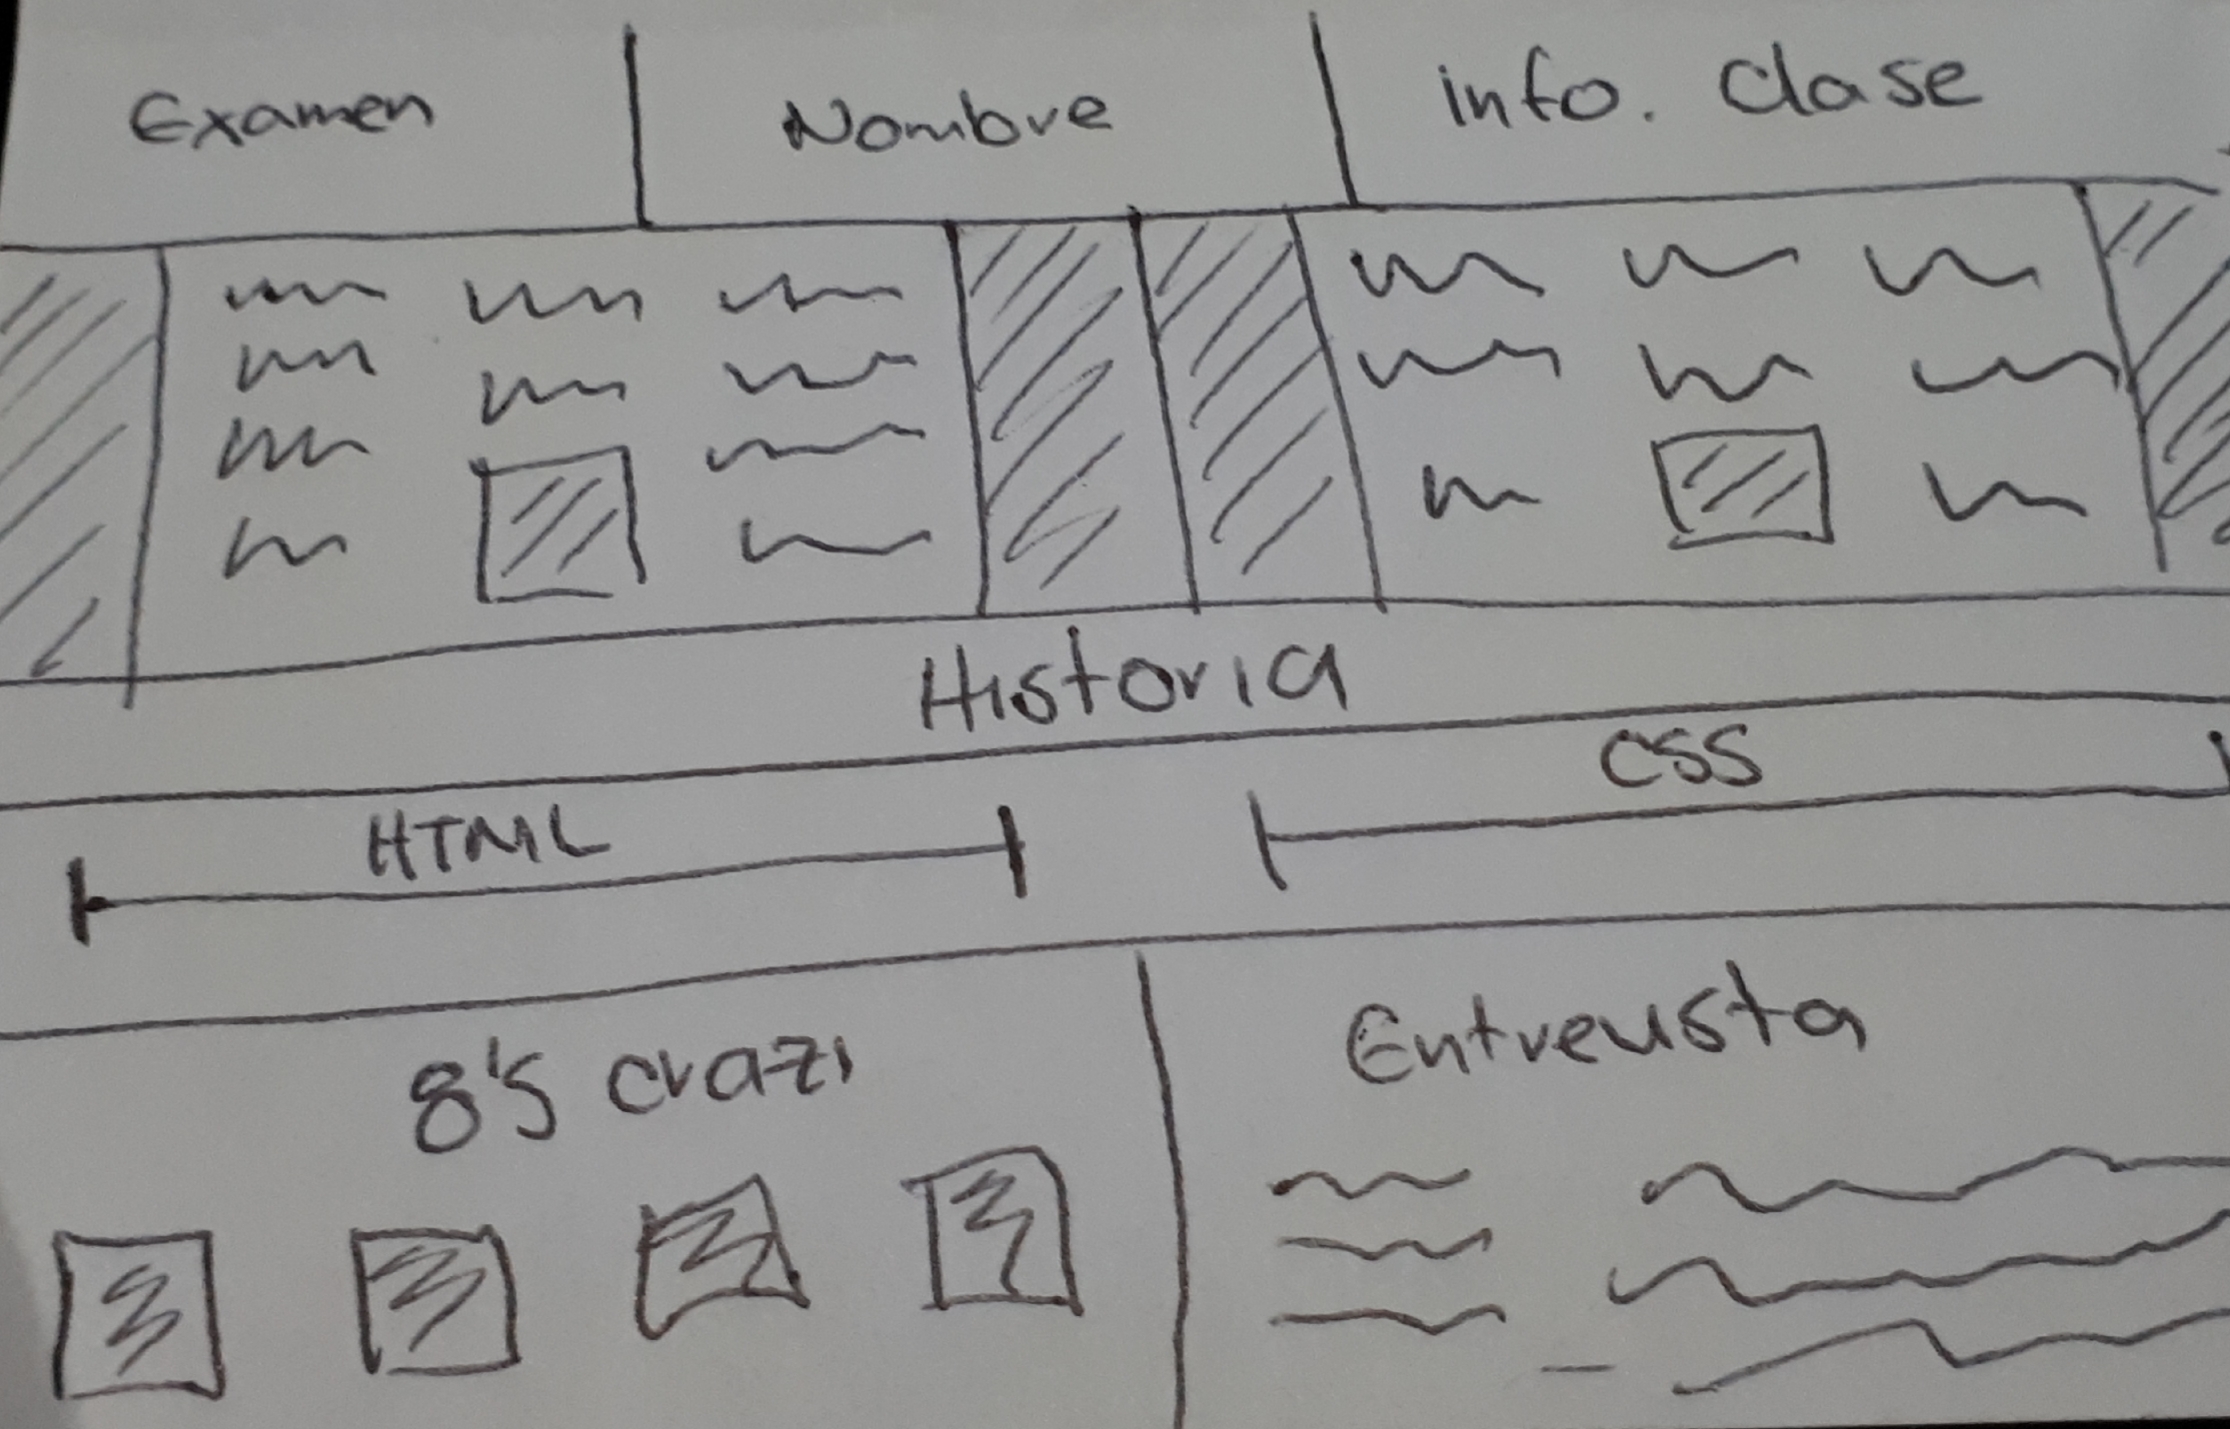 Examen
Nombre
info. Clase
Historia
HTML
CSS
8's crazi
Entrevista